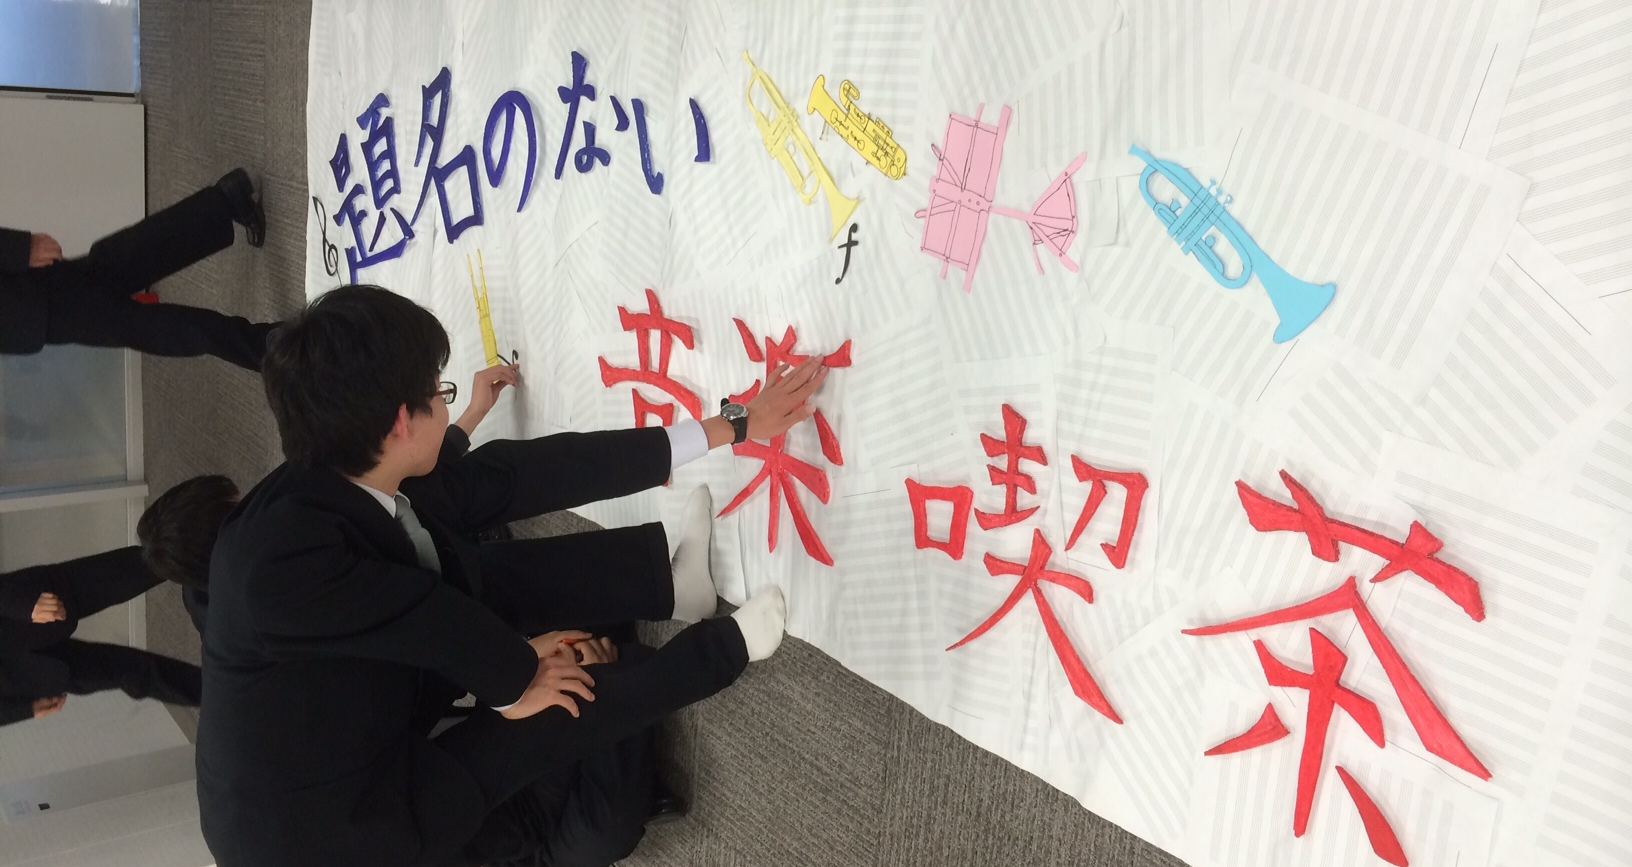 題名のない
音楽喫茶